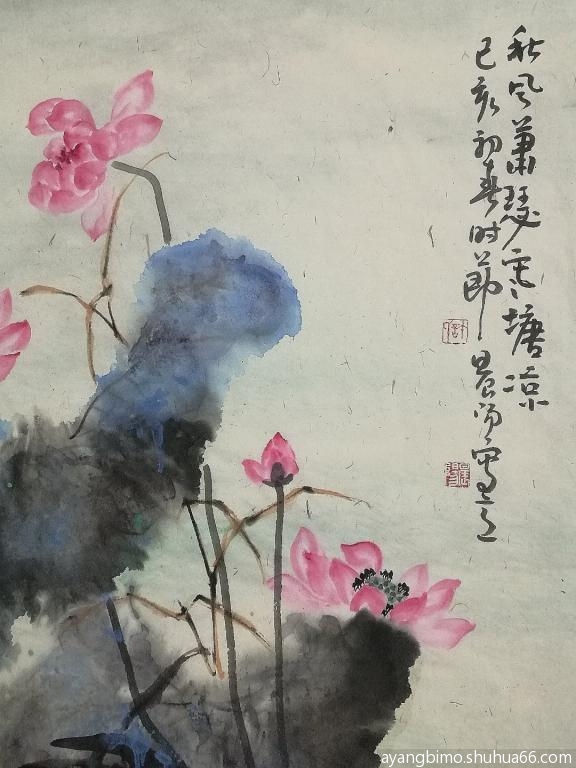 秋风萧瑟寒塘凉
己亥初春时節 晨阳写之
ayangbimo.shuhua66.com